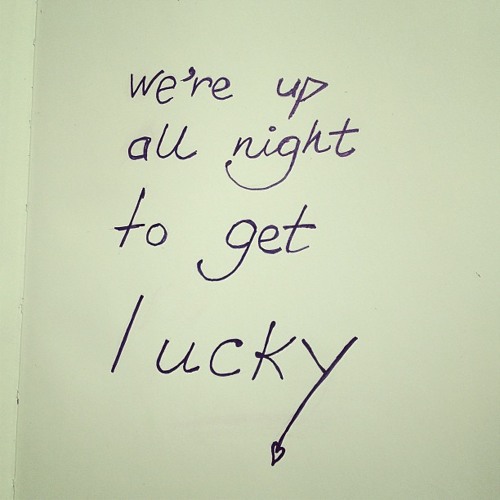 we're up
all night
to get
lucky